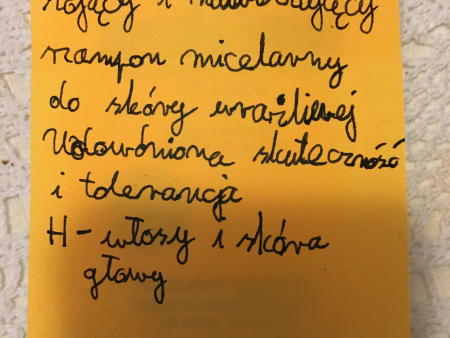 i nawilżający
szampon micelarny
do skóry wrażliwej
Udowodniona skuteczność
i tolerancja
H - włosy i skóra
głowy